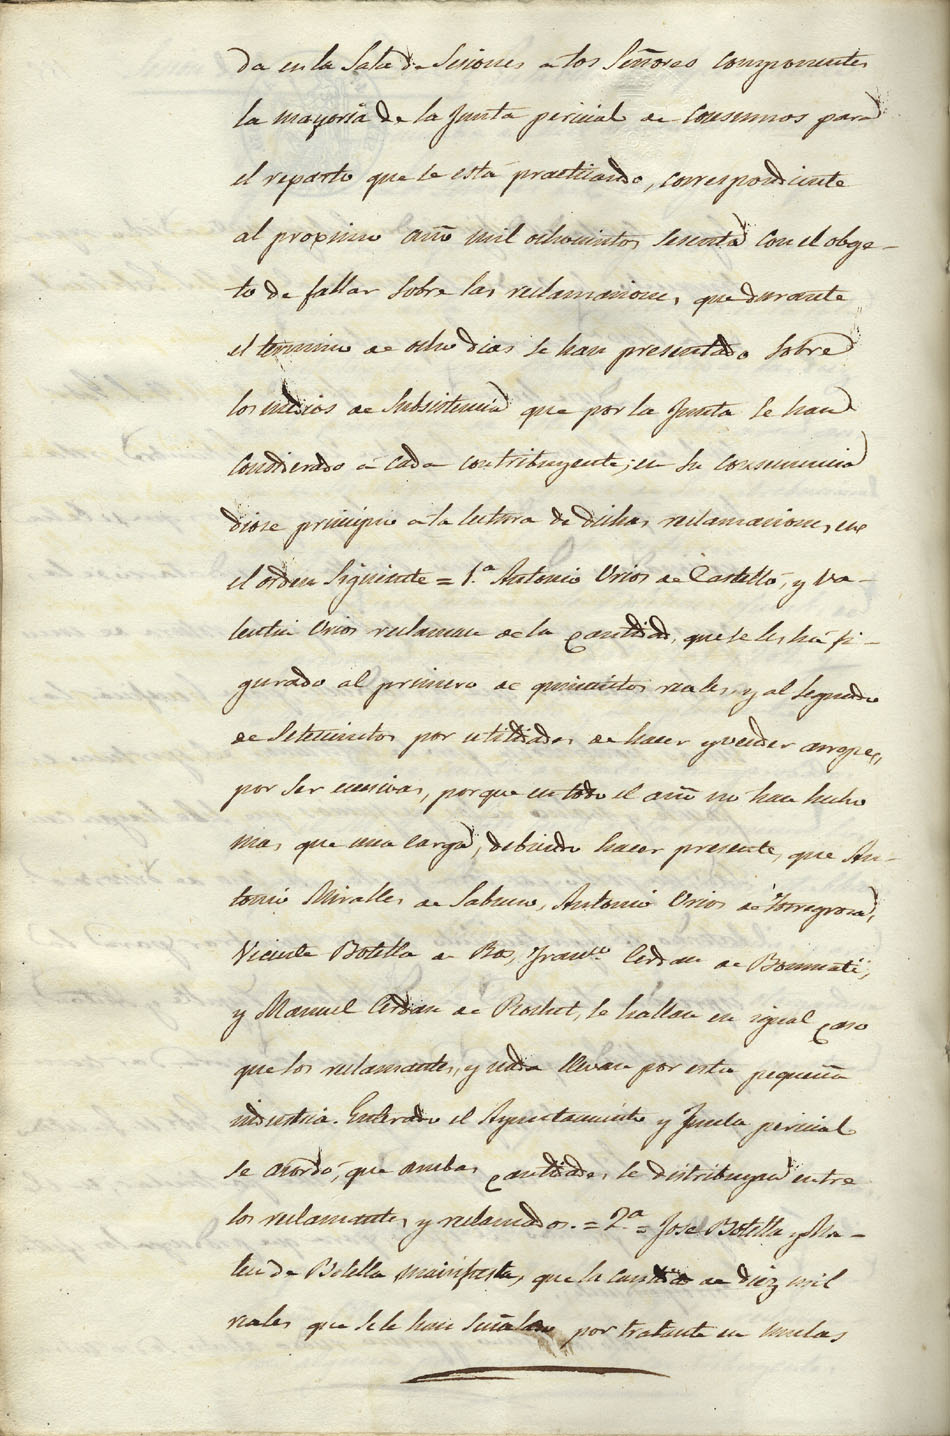 da en la Sala de Sesiones a los Señores componentes
la mayoria de la Junta pericial de Consumos para
el reparto que se está practicando, correspondiente
al proximo año mil ochocientos sesenta con el obge-
to de fallar sobre las reclamaciones, que durante
el termino de ocho dias se han presentado sobre
los medios de subsistencia que por la Junta se han
considerado á cada contribuyente; en su consecuencia
diose principio á la lectura de dichas reclamaciones, en
el orden siguiente = 1.ª Antonio Urios de Castelló, y Va-
lentin Urios reclaman de la cantidad, que se les há fi-
gurado al primero de quinientos reales, y al segundo
de setecientos por utilidades de hacer y vender arropes,
por ser excesivas, porque en todo el año no han hecho
mas, que una carga, debiendo hacer presente, que An-
tonio Miralles de Sabuco, Antonio Urios de Torregrosa,
Vicente Botella de Ros, Fran.co Cerdan de Bonmati,
y Manuel Cerdan de Richart, se hallan en igual caso
que los reclamantes, y nada llevan por esta pequeña
industria. Enterado el Ayuntamiento y Junta pericial
se acordó, que ambas cantidades se distribuyan entre
los reclamantes, y reclamados. = 2.ª = José Botella y Ma-
teu de Botella manifiesta, que la cantidad de diez mil
reales que se le han señalado por tratante en mulas